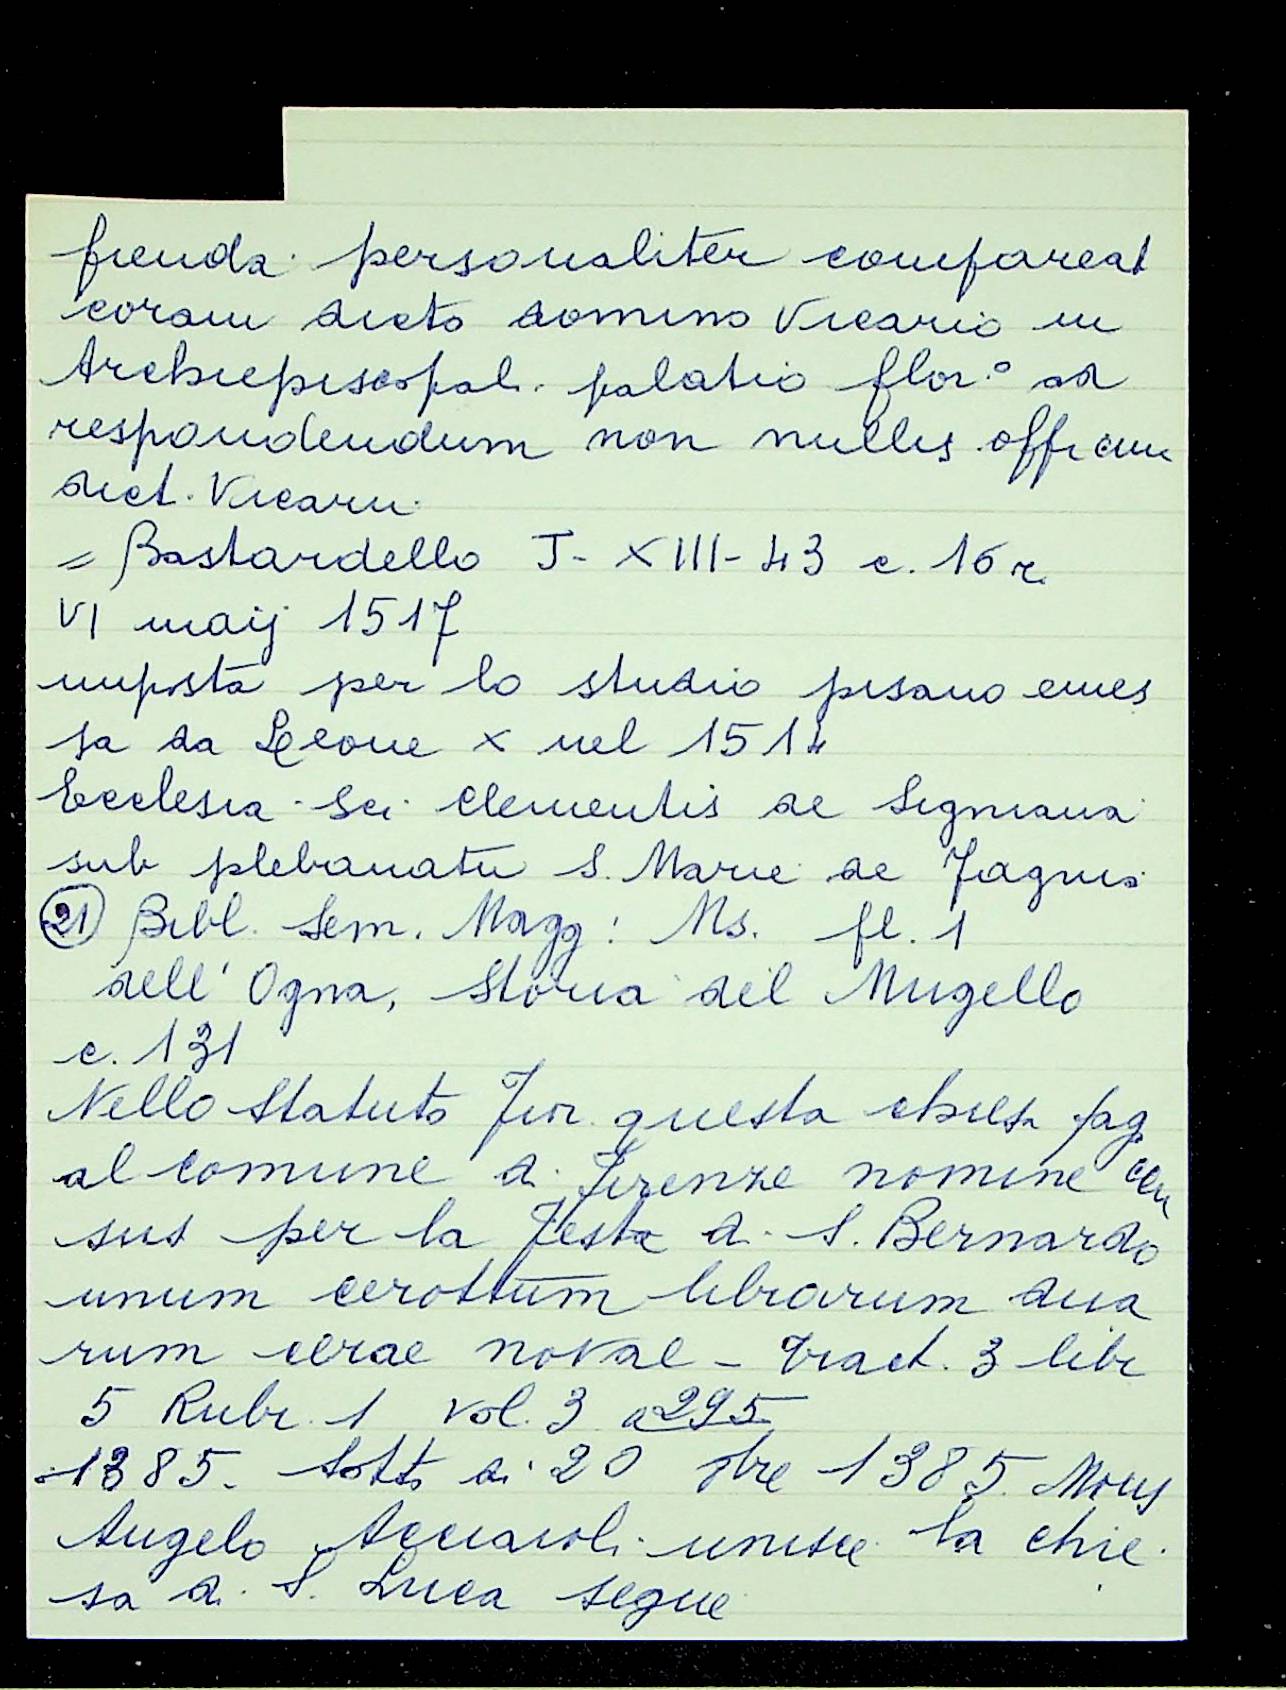 fienda personaliter compareat
coram dicto domino Vicario in
Archiepiscopali palatio flor.° ad
respondendum non nullis offitium
dict. Vicarii.
= Bastardello I- XIII- 43 c. 16 r.
VI maij 1517
imposta per lo studio pisano emes
sa da Leone X nel 1514
Ecclesia Sci Clementis de Signiana
sub plebanatu S. Marie de Fagnia
(21) Bibl. Sem. Magg: Ms. fl. 1
dell' Ogna, Storia del Mugello
c. 131
Nello Statuto fior. questa chiesa pag
al comune di Firenze nomine cen
sus per la festa di S. Bernardo
unum cerottum librarum dua
rum cerae novae - Tract. 3 libr
5 Rubr. 1 vol. 3 a 295
1385. Sotto di 20 1385. Mons
Angelo Acciaioli unisce la chie
sa di S. Luca segue